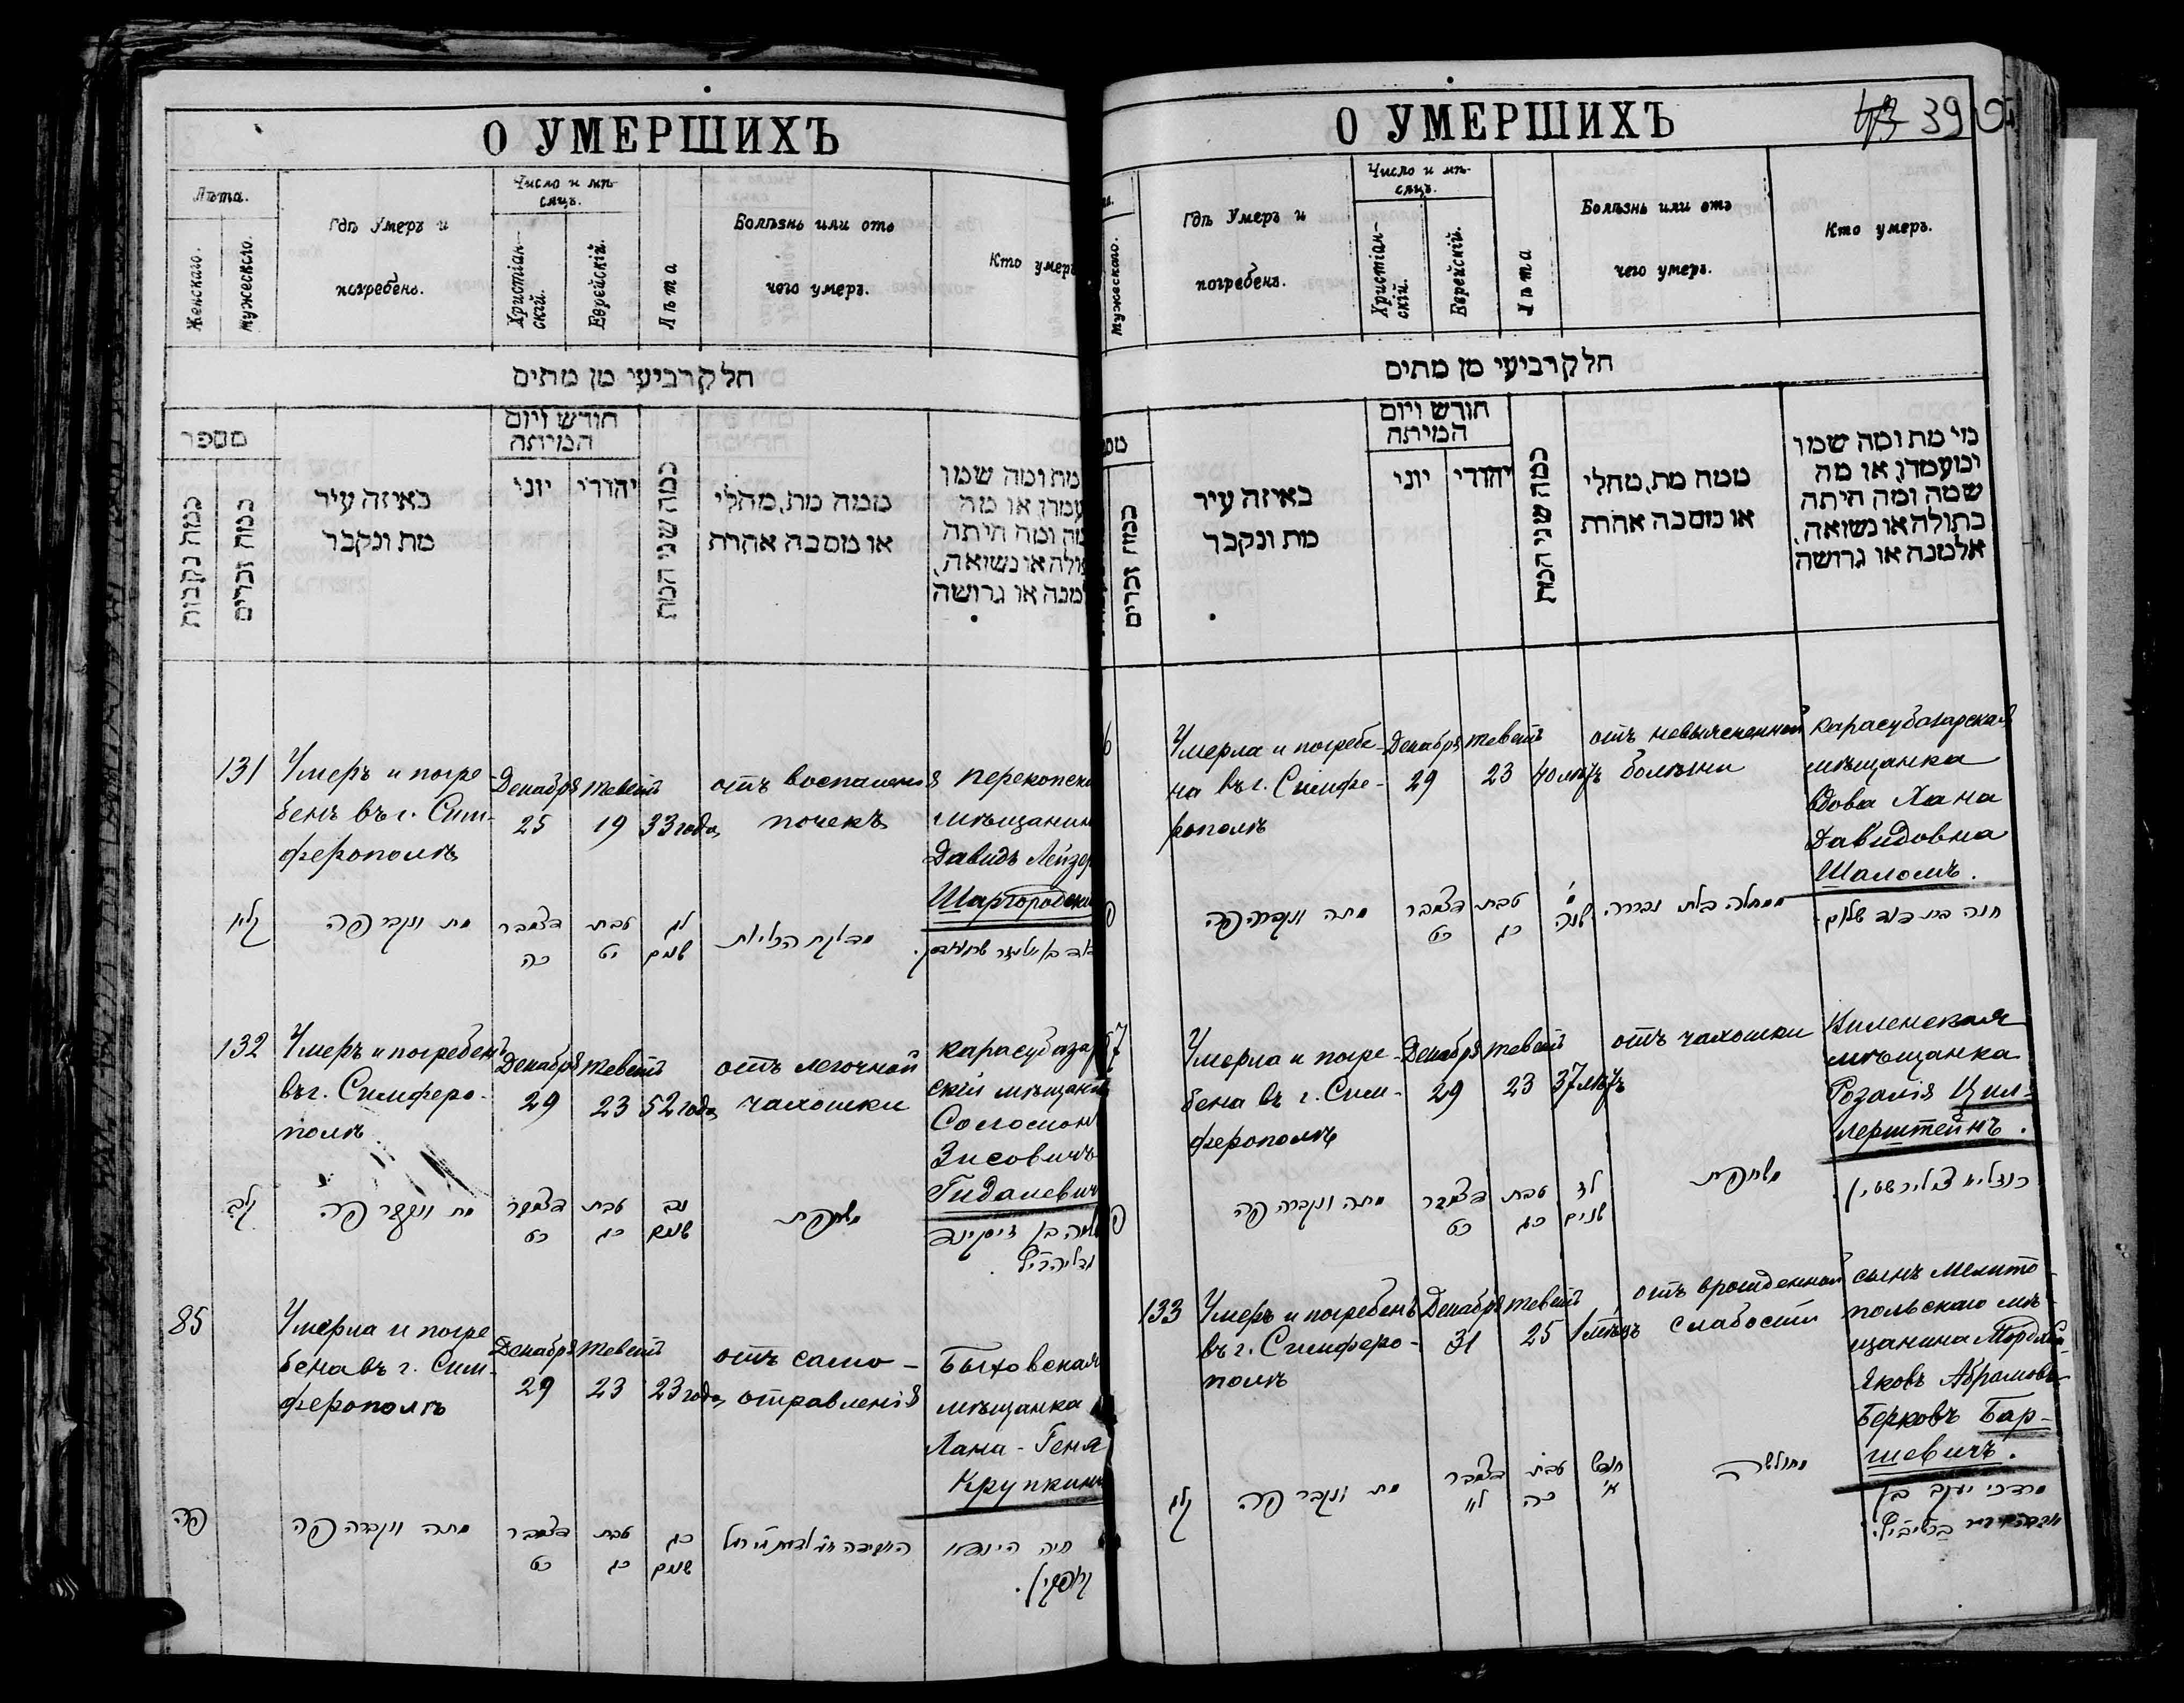 О УМЕРШИХЪ
Лѣта.
Женскаго.
Мужескаго.
Гдѣ Умеръ и
погребенъ.
Число и мѣ-
сяцъ.
Христіан-
скій.
Еврейскій.
Лѣта
Болѣзнь или отъ
чего умеръ.
Кто умеръ
חלק רביעי מן מתים
מספר
כמה נקבות
כמה זכרים
באיזה עיר
מת ונקבר
חודש ויום
המיתה
יוני
יהודי
כמה שני המת
ממה מת, מחלי
או מסבה אחרת
מת ומה שמו
עמדו, או מה
מה ומה היתה
ולה או נשואה,
מנה או גרושה
131
Умеръ и погре-
бенъ въ г. Сим-
ферополѣ
Декабря
25
Теветъ
19
33 года
отъ воспаленія
почекъ
Перекопски
мѣщанин
Давидъ Лейзер
Шаргородски
קלא
מת ונקבר פה
דצמבר
כה
טבת
יט
לג
שנים
מדלקת הכליות
132
Умеръ и погребенъ
въ г. Симферо-
полѣ
Декабря
29
Теветъ
23
52 года
отъ легочной
чахотки
Карасубазар
скій мѣщанинъ
Соломон
Зисовичъ
Гидалевич
קלב
מת ונקבר פה
דצמבר
כט
טבת
כג
נב
שנים
משחפת
85
Умерла и погре
бена въ г. Сим-
ферополѣ
Декабря
29
Теветъ
23
23 года
отъ само-
отравленія
Быховская
мѣщанка
Хана-Геня
Крупкина
פה
מתה ונקברה פה
דצמבר
כט
טבת
כג
כג
שנים
О УМЕРШИХЪ
43 39
Мужескаго.
Гдѣ Умеръ и
погребенъ.
Число и мѣ-
сяцъ.
Христіан-
скій.
Еврейскій.
Лѣта
Болѣзнь или отъ
чего умеръ.
Кто умеръ.
חלק רביעי מן מתים
מס
כמה זכרים
באיזה עיר
מת ונקבר
חודש ויום
המיתה
יוני
יהודי
כמה שני המת
ממה מת, מחלי
או מסבה אחרת
מי מת ומה שמו
ומעמדו, או מה
שמה ומה היתה
בתולה או נשואה,
אלמנה או גרושה
6
Умерла и погребе-
на въ г. Симфе-
рополѣ
Декабря
29
Теветъ
23
40 лѣтъ
отъ невыясненной
болѣзни
Карасубазарская
мѣщанка
вдова Хана
Давидовна
Шаломъ.
מתה ונקברה פה
דצמבר
כט
טבת
כג
מ
שנה
ממחלה בלתי נבררה.
חנה בת דוד שלום.
7
Умерла и погре-
бена въ г. Сим-
ферополѣ
Декабря
29
Теветъ
23
37 лѣтъ
отъ чахотки
Виленская
мѣщанка
Розалія Цил-
лерштейнъ.
מתה ונקברה פה
דצמבר
כט
טבת
כג
לז
שנים
משחפת
רוזליא צילירשטיין.
133
Умеръ и погребенъ
въ г. Симферо-
полѣ
Декабря
31
Теветъ
25
1 мѣсяцъ
отъ врожденной
слабости
сынъ Мелито-
польскаго мѣ-
щанина Мордхе
Яковъ Абрамовъ-
Берковъ Бар-
шевичъ.
קלג
מת ונקבר פה
דצמבר
לא
טבת
כה
חודש
א'
מחולשה
מרדכי יעקב בן